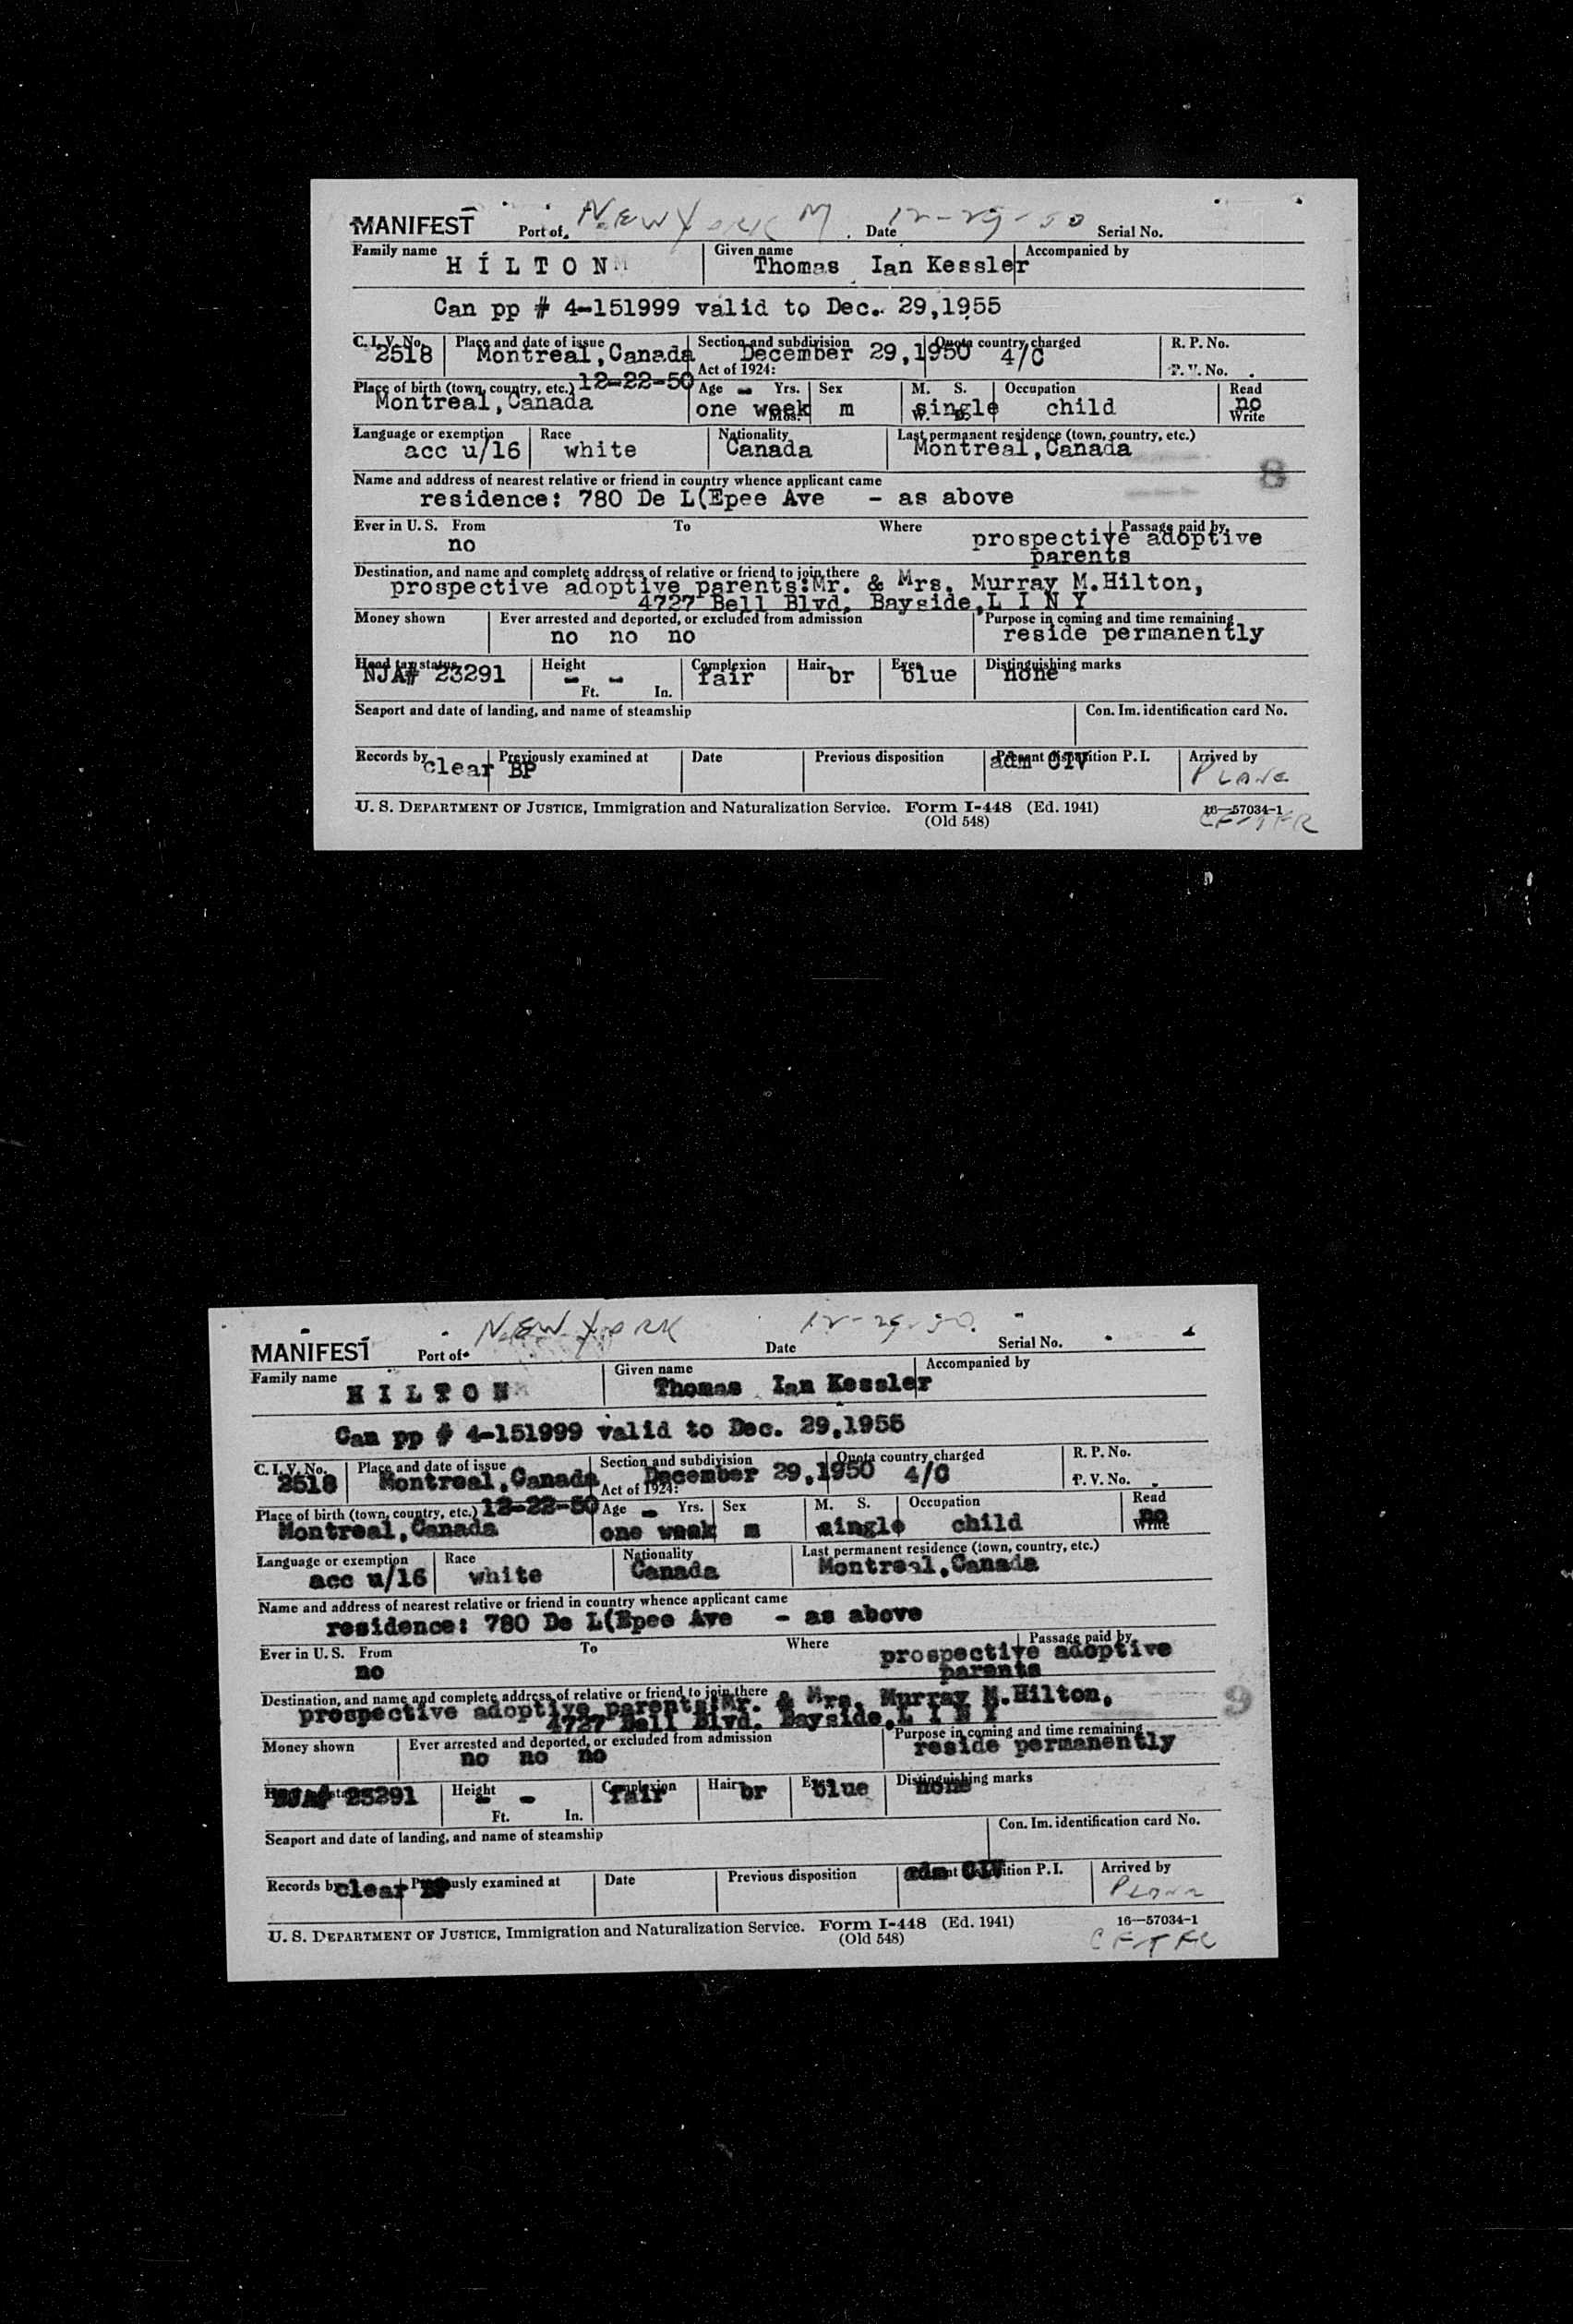 MANIFEST Port of NEW YORK M Date 12-29-50 Serial No.
Family name Given name Accompanied by
HILTON Thomas Ian Kessler
Can pp # 4-151999 valid to Dec. 29,1955
C. I. V. No. Place and date of issue Section and subdivision Quota country charged R. P. No.
2518 Montreal,Canada December 29,1950 4/C
Act of 1924: P. V. No.
Place of birth (town, country, etc.) 12-22-50 Age - Yrs. Sex M. S. Occupation Read
Montreal,Canada one week Mos. m single W. D. child no
Write
Language or exemption Race Nationality Last permanent residence (town, country, etc.)
acc u/16 white Canada Montreal,Canada
8
Name and address of nearest relative or friend in country whence applicant came
residence: 780 De L(Epee Ave - as above
Ever in U. S. From To Where Passage paid by
no prospective adoptive
parents
Destination, and name and complete address of relative or friend to join there
prospective adoptive parents:Mr. & Mrs. Murray M.Hilton,
4727 Bell Blvd. Bayside,L I N Y
Money shown Ever arrested and deported, or excluded from admission Purpose in coming and time remaining
no no no reside permanently
Head tax status Height Complexion Hair Eyes Distinguishing marks
NJA# 23291 - - fair br blue none
Ft. In.
Seaport and date of landing, and name of steamship Con. Im. identification card No.
Records by Previously examined at Date Previous disposition Present disposition P. I. Arrived by
clear BP adm CIV PLANE
U. S. DEPARTMENT OF JUSTICE, Immigration and Naturalization Service. Form I-448 (Ed. 1941) 16—57034-1
(Old 548)
MANIFEST Port of NEW YORK Date 12-29-50 Serial No.
Family name Given name Accompanied by
HILTON Thomas Ian Kessler
Can pp # 4-151999 valid to Dec. 29,1955
C. I. V. No. Place and date of issue Section and subdivision Quota country charged R. P. No.
2518 Montreal,Canada December 29,1950 4/C
Act of 1924: P. V. No.
Place of birth (town, country, etc.) 12-22-50 Age - Yrs. Sex M. S. Occupation Read
Montreal,Canada one week m single child no
Write
Language or exemption Race Nationality Last permanent residence (town, country, etc.)
acc u/16 white Canada Montreal,Canada
Name and address of nearest relative or friend in country whence applicant came
residence: 780 De L(Epee Ave - as above
Ever in U. S. From To Where Passage paid by
no prospective adoptive
parents
Destination, and name and complete address of relative or friend to join there
prospective adoptive parents:Mr. & Mrs. Murray M.Hilton,
4727 Bell Blvd. Bayside,L I N Y
9
Money shown Ever arrested and deported, or excluded from admission Purpose in coming and time remaining
no no no reside permanently
Height Complexion Hair Eyes Distinguishing marks
NJA# 23291 - - fair br blue none
Ft. In.
Seaport and date of landing, and name of steamship Con. Im. identification card No.
Records by Previously examined at Date Previous disposition Present disposition P. I. Arrived by
clear BP adm CIV PLANE
U. S. DEPARTMENT OF JUSTICE, Immigration and Naturalization Service. Form I-448 (Ed. 1941) 16—57034-1
(Old 548)